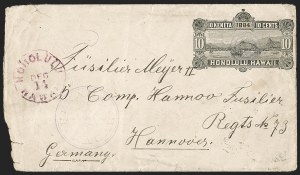 10 KENETA 1884 10 CENTS
10 10
HONOLULU HAWAII
HONOLULU
DEC
Füsilier Meyer II
5 Comp. Hannov Fusilier
Regts № 73
Hannover.
Germany.